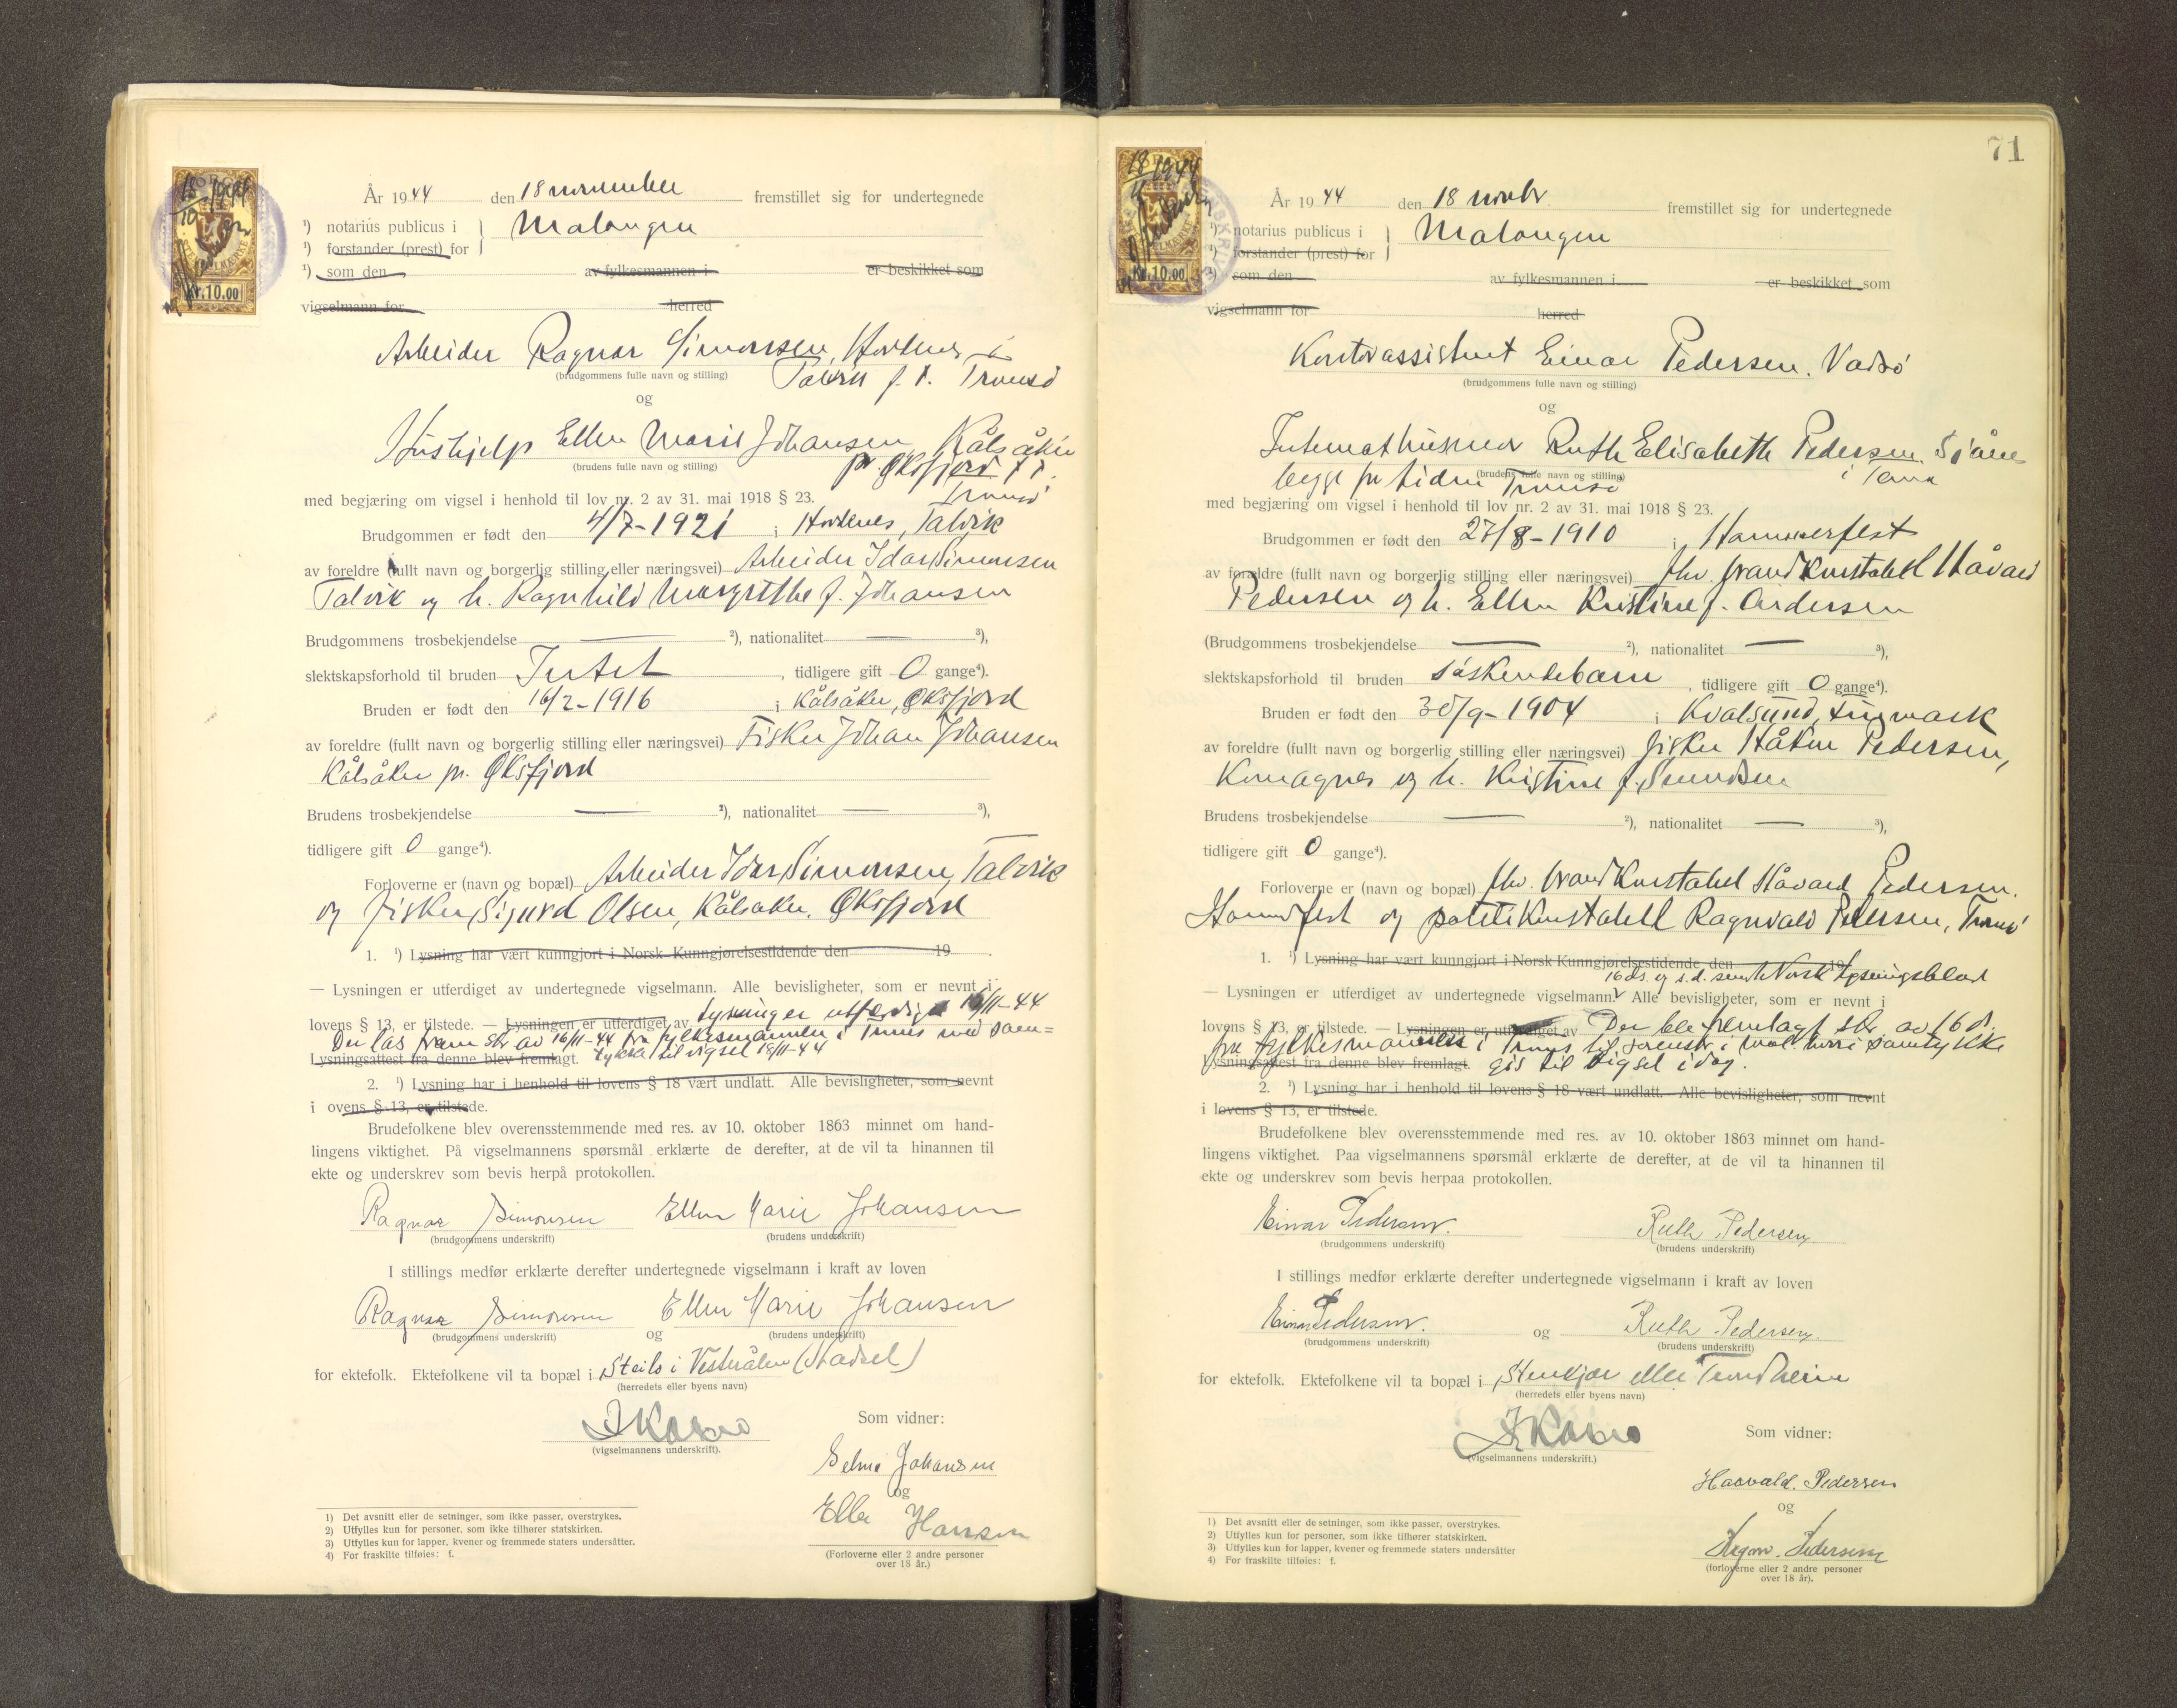 År 1944 den 18 november fremstillet sig for undertegnede
¹) notarius publicus i Malangen
¹) forstander (prest) for
¹) som den av fylkesmannen i er beskikket som
vigselmann for herred
Arbeider Ragnar Simonsen, Hortnes i
(brudgommens fulle navn og stilling) Talvik f. t. Tromsø
og
Hushjelp Ellen Marie Johansen, Kålsåker
(brudens fulle navn og stilling) pr. Øksfjord f t.
Tromsø
med begjæring om vigsel i henhold til lov nr. 2 av 31. mai 1918 § 23.
Brudgommen er født den 4/7-1921 i Hortnes, Talvik
av foreldre (fullt navn og borgerlig stilling eller næringsvei) Arbeider Idar Simonsen
Talvik og h. Ragnhild Margrethe f. Johansen
Brudgommens trosbekjendelse — ²), nationalitet — ³),
slektskapsforhold til bruden Intet, tidligere gift 0 gange⁴).
Bruden er født den 16/2-1916 i Kålsåker, Øksfjord
av foreldre (fullt navn og borgerlig stilling eller næringsvei) Fisker Johan Johansen
Kålsåker pr. Øksfjord
Brudens trosbekjendelse — ²), nationalitet — ³),
tidligere gift 0 gange⁴).
Forloverne er (navn og bopæl) Arbeider Idar Simonsen, Talvik
og fisker Sigurd Olsen, Kålsåker, Øksfjord
1. ¹) Lysning har vært kunngjort i Norsk Kunngjørelsestidende den 19 .
— Lysningen er utferdiget av undertegnede vigselmann. Alle bevisligheter, som er nevnt i
lovens § 13, er tilstede. — Lysningen er utferdiget av Lysninger utferdiget 16/11-44
Der lås fram skr av 16/11-44 fra fylkesmannen i Troms med sam=
Lysningsattest fra denne blev fremlagt. tykke til vigsel 18/11-44
2. ¹) Lysning har i henhold til lovens § 18 vært undlatt. Alle bevisligheter, som nevnt
i ovens § 13, er tilstede.
Brudefolkene blev overensstemmende med res. av 10. oktober 1863 minnet om hand-
lingens viktighet. På vigselmannens spørsmål erklærte de derefter, at de vil ta hinannen til
ekte og underskrev som bevis herpå protokollen.
Ragnar Simonsen Ellen Marie Johansen
(brudgommens underskrift) (brudens underskrift)
I stillings medfør erklærte derefter undertegnede vigselmann i kraft av loven
Ragnar Simonsen Ellen Marie Johansen
(brudgommens underskrift) og (brudens underskrift)
for ektefolk. Ektefolkene vil ta bopæl i Steilo i Vesterålen (Hadsel)
(herredets eller byens navn)
(vigselmannens underskrift).
Som vidner:
Selma Johansen
og
Ella Hansen
(Forloverne eller 2 andre personer
over 18 år.)
1) Det avsnitt eller de setninger, som ikke passer, overstrykes.
2) Utfylles kun for personer, som ikke tilhører statskirken.
3) Utfylles kun for lapper, kvener og fremmede staters undersåtter.
4) For fraskilte tilføies: f.
Kr.10.00
71
År 1944 den 18 novbr. fremstillet sig for undertegnede
¹) notarius publicus i Malangen
¹) forstander (prest) for
¹) som den av fylkesmannen i er beskikket som
vigselmann for herred
Kontorassistent Einar Pedersen, Vadsø
(brudgommens fulle navn og stilling)
og
Internathusmor Ruth Elisabeth Pedersen
(brudens fulle navn og stilling) i Tana
begge for tiden Tromsø
med begjæring om vigsel i henhold til lov nr. 2 av 31. mai 1918 § 23.
Brudgommen er født den 27/8-1910 i Hammerfest
av foreldre (fullt navn og borgerlig stilling eller næringsvei) fhv. brandkonstabel Håvard
Pedersen og h. Ellen Kristine f. Andersen
(Brudgommens trosbekjendelse — ²), nationalitet — ³),
slektskapsforhold til bruden søskendebarn, tidligere gift 0 gange⁴).
Bruden er født den 30/9-1904 i Kvalsund, Finnmark
av foreldre (fullt navn og borgerlig stilling eller næringsvei) fisker Håkon Pedersen,
Komagnes og h. Kristine f.
Brudens trosbekjendelse — ²), nationalitet — ³),
tidligere gift 0 gange⁴).
Forloverne er (navn og bopæl) fhv. brandkonstabel Håvard Pedersen.
Hammerfest og politikonstabell Ragnvald Pedersen, Tromsø
1. ¹) Lysning har vært kunngjort i Norsk Kunngjørelsestidende den 19
16 ds. og s.d. sendt Norsk Lysningsblad
— Lysningen er utferdiget av undertegnede vigselmann. Alle bevisligheter, som er nevnt i
lovens § 13, er tilstede. — Lysningen er utferdiget av Der ble fremlagt skr. av 16 ds.
fra fylkesmannen i Troms til sorenskr. i Mal. hvori samtykke
Lysningsattest fra denne blev fremlagt. gis til vigsel i dag.
2. ¹) Lysning har i henhold til lovens § 18 vært undlatt. Alle bevisligheter, som nevnt
i lovens § 13, er tilstede.
Brudefolkene blev overensstemmende med res. av 10. oktober 1863 minnet om hand-
lingens viktighet. Paa vigselmannens spørsmål erklærte de derefter, at de vil ta hinannen til
ekte og underskrev som bevis herpaa protokollen.
Einar Pedersen. Ruth Pedersen.
(brudgommens underskrift) (brudens underskrift)
I stillings medfør erklærte derefter undertegnede vigselmann i kraft av loven
Einar Pedersen. Ruth Pedersen.
(brudgommens underskrift) og (brudens underskrift)
for ektefolk. Ektefolkene vil ta bopæl i Stenkjær eller Trondheim
(herredets eller byens navn)
(vigselmannens underskrift.)
Som vidner:
Haavald. Pedersen
og
Pedersen
(forloverne eller 2 andre personer
over 18 år).
1) Det avsnitt eller de setninger, som ikke passer, overstrykes.
2) Utfylles kun for personer, som ikke tilhører statskirken.
3) Utfylles kun for lapper, kvener og fremmede staters undersåtter
4) For fraskilte tilføies: f.
Kr.10.00